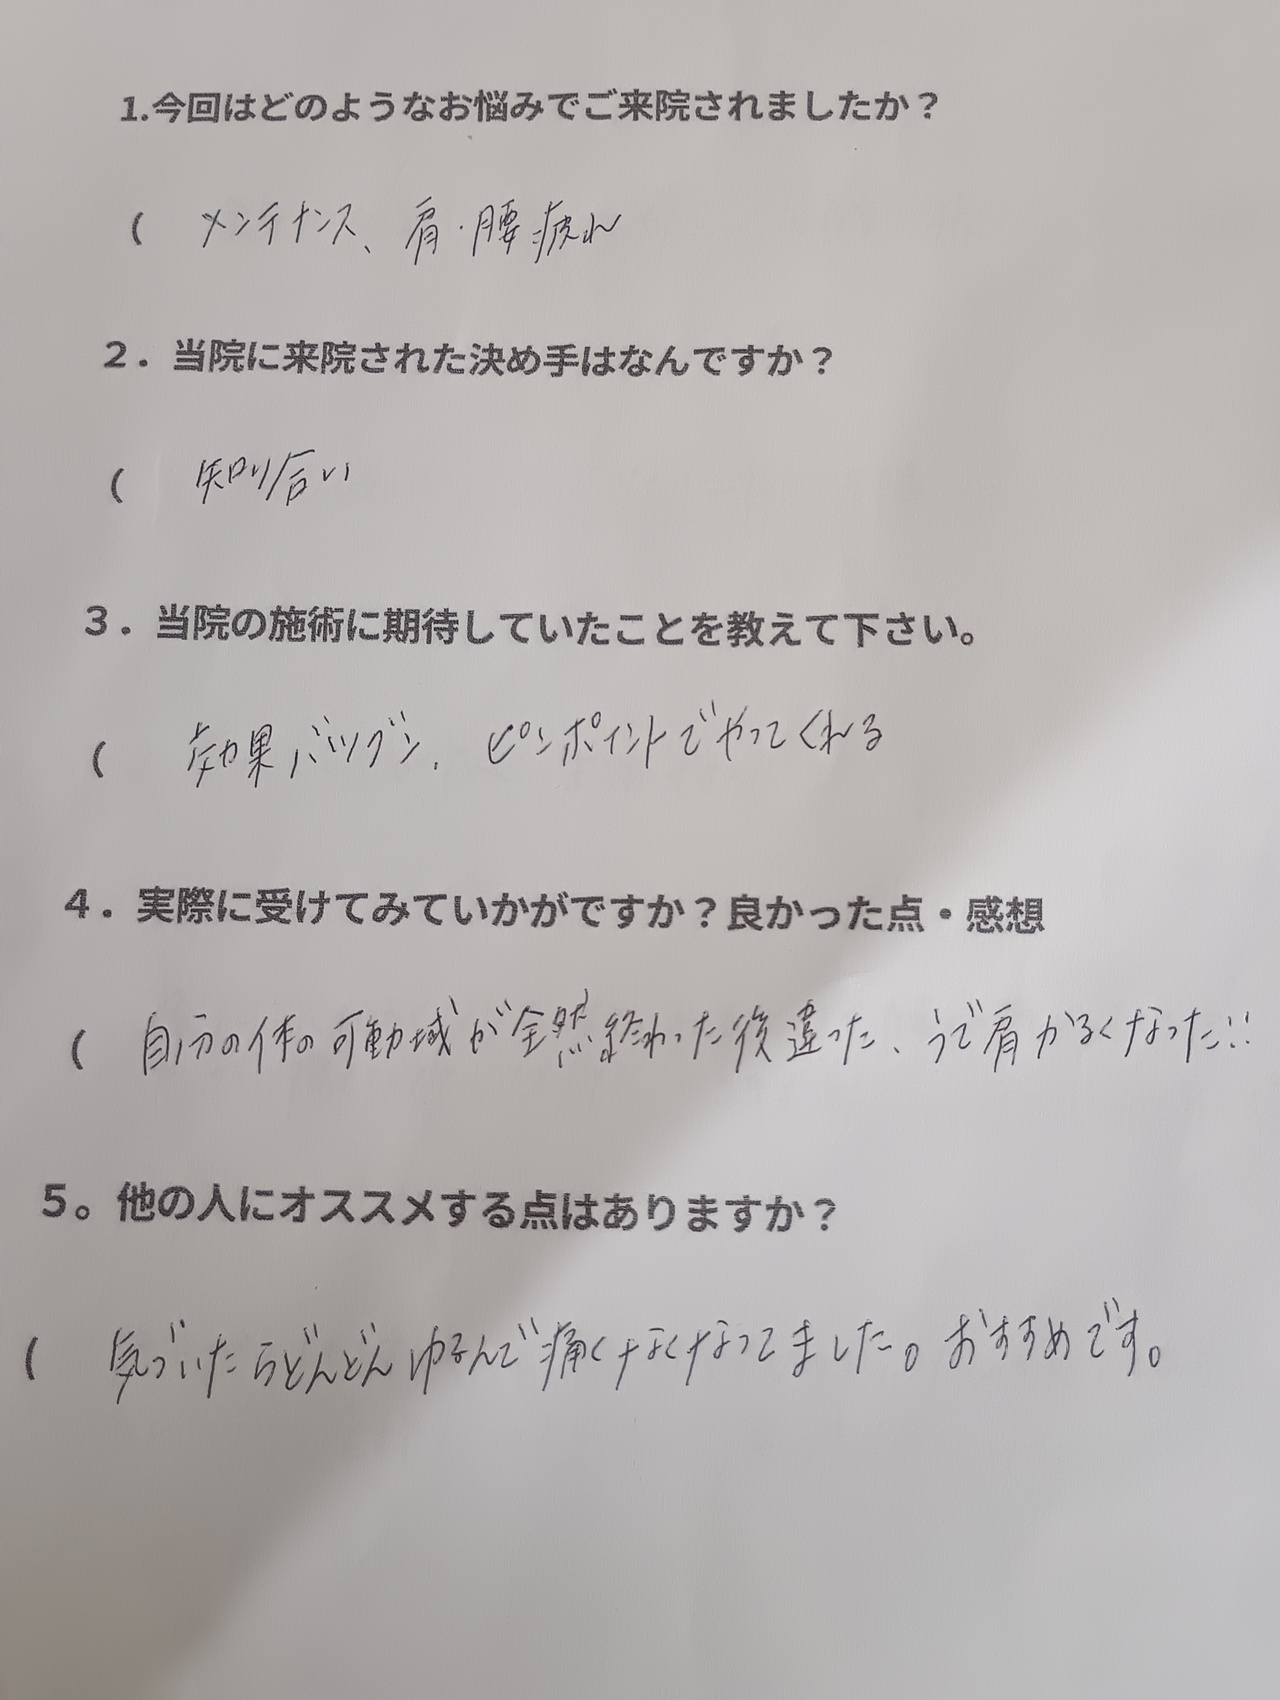 1.今回はどのようなお悩みでご来院されましたか？
( メンテナンス、肩・腰疲れ
２．当院に来院された決め手はなんですか？
( 知り合い
３．当院の施術に期待していたことを教えて下さい。
( 効果バツグン、ピンポイントでやってくれる
４．実際に受けてみていかがですか？良かった点・感想
( 自分の体の可動域が全然終わった後違った、うで肩かるくなった!!
５。他の人にオススメする点はありますか？
( 気づいたらどんどんゆるんで痛くなくなってました。おすすめです。